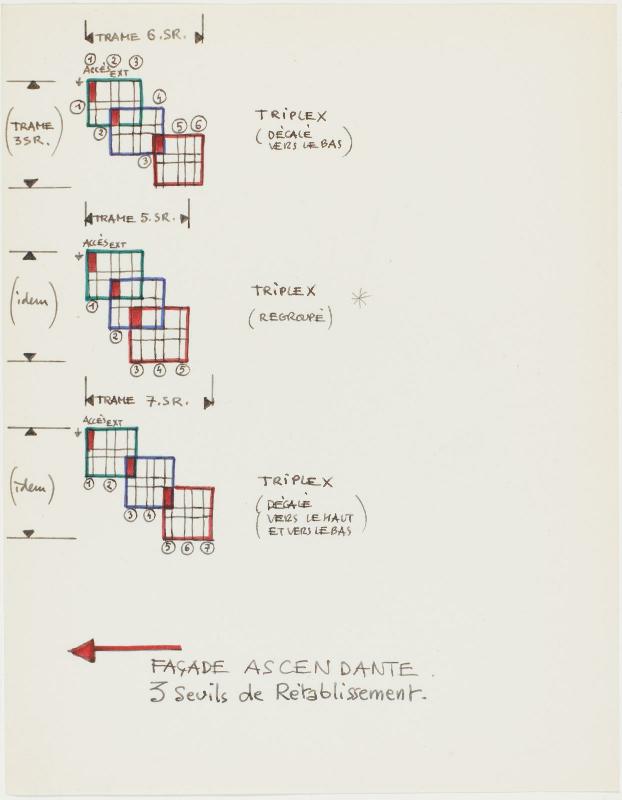 TRAME 6.SR.
① ② ③
ACCÈS EXT
④
①
(TRAME
3 SR.)
②
⑤ ⑥
③
TRIPLEX
(DÉCALÉ
VERS LE BAS)
TRAME 5.SR.
ACCÈS EXT
(idem)
①
②
③ ④ ⑤
TRIPLEX
(REGROUPÉ)
TRAME 7.SR.
ACCÈS EXT
(idem)
① ②
③ ④
⑤ ⑥ ⑦
TRIPLEX
(DÉCALÉ
VERS LE HAUT
ET VERS LE BAS)
FAÇADE ASCENDANTE.
3 Seuils de Rétablissement.